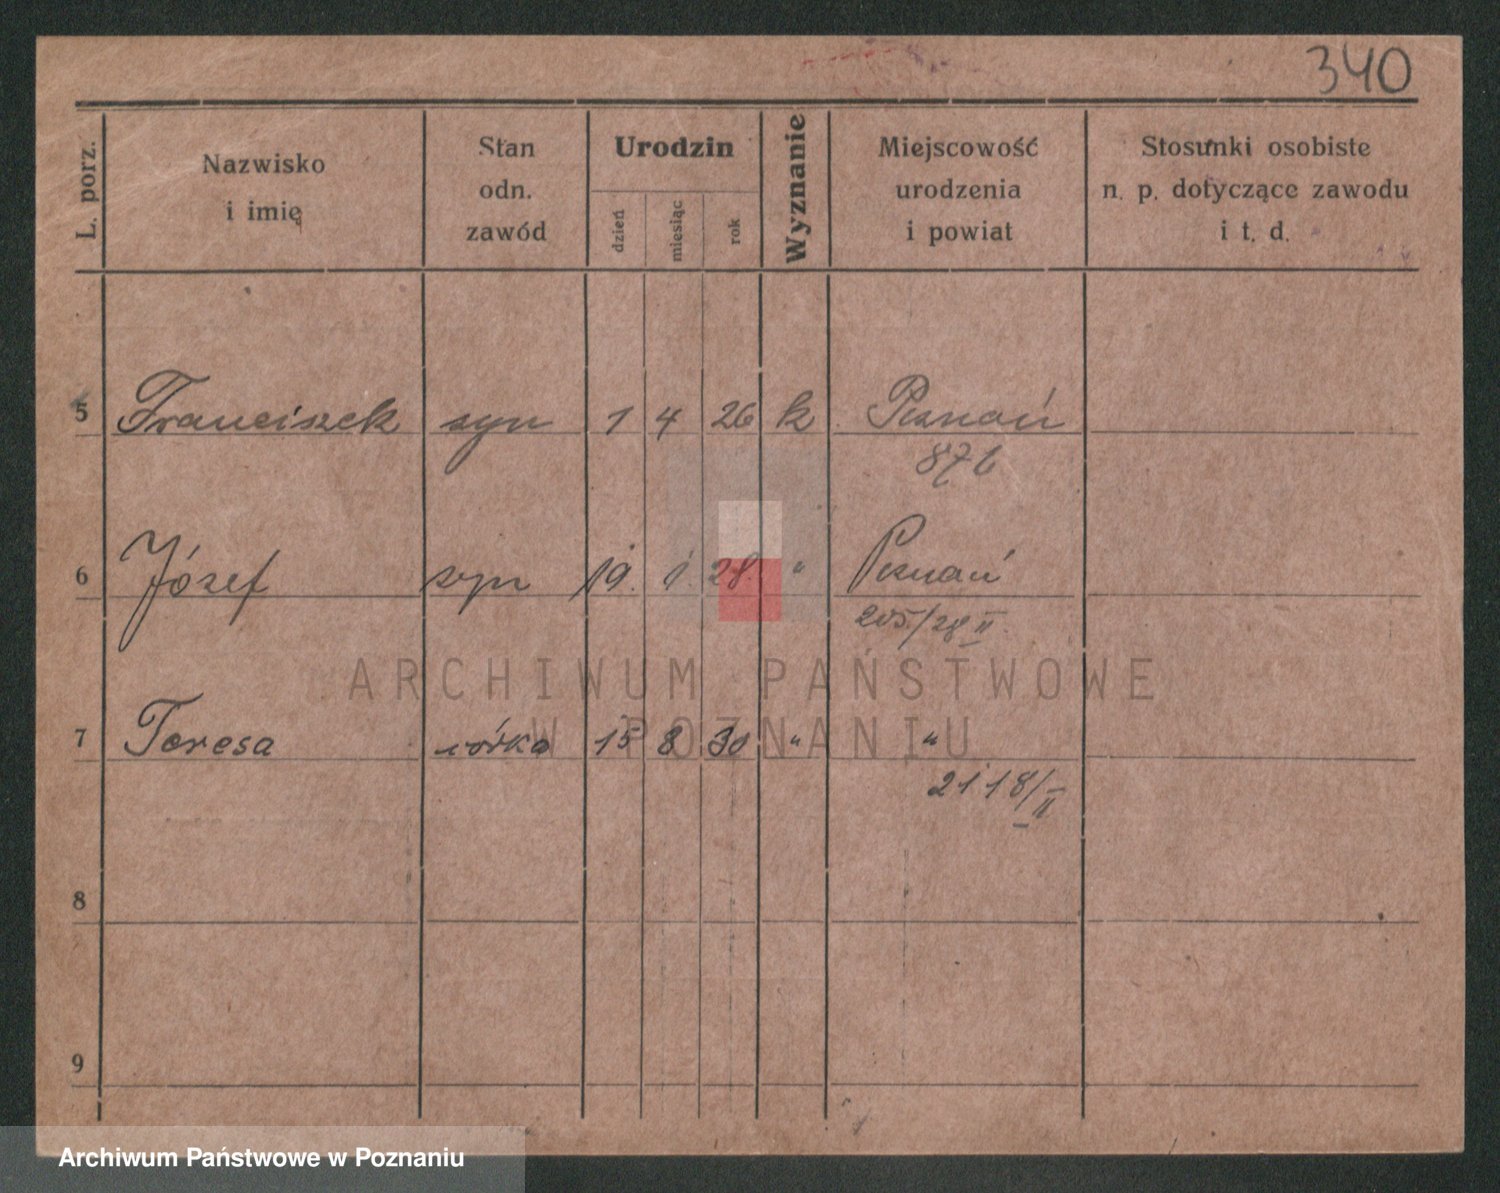 340
L. porz. Nazwisko i imię Stan odn. zawód Urodzin dzień miesiąc rok Wyznanie Miejscowość urodzenia i powiat Stosunki osobiste n. p. dotyczące zawodu i t. d.
5 Franciszek syn 1 4 26 k Poznań
876
6 Józef syn 19. 1. 28. " Poznań
205/28 II
7 Teresa córka 15 8 30 " "
2118/II
8
9
ARCHIWUM PAŃSTWOWE
W POZNANIU
Archiwum Państwowe w Poznaniu